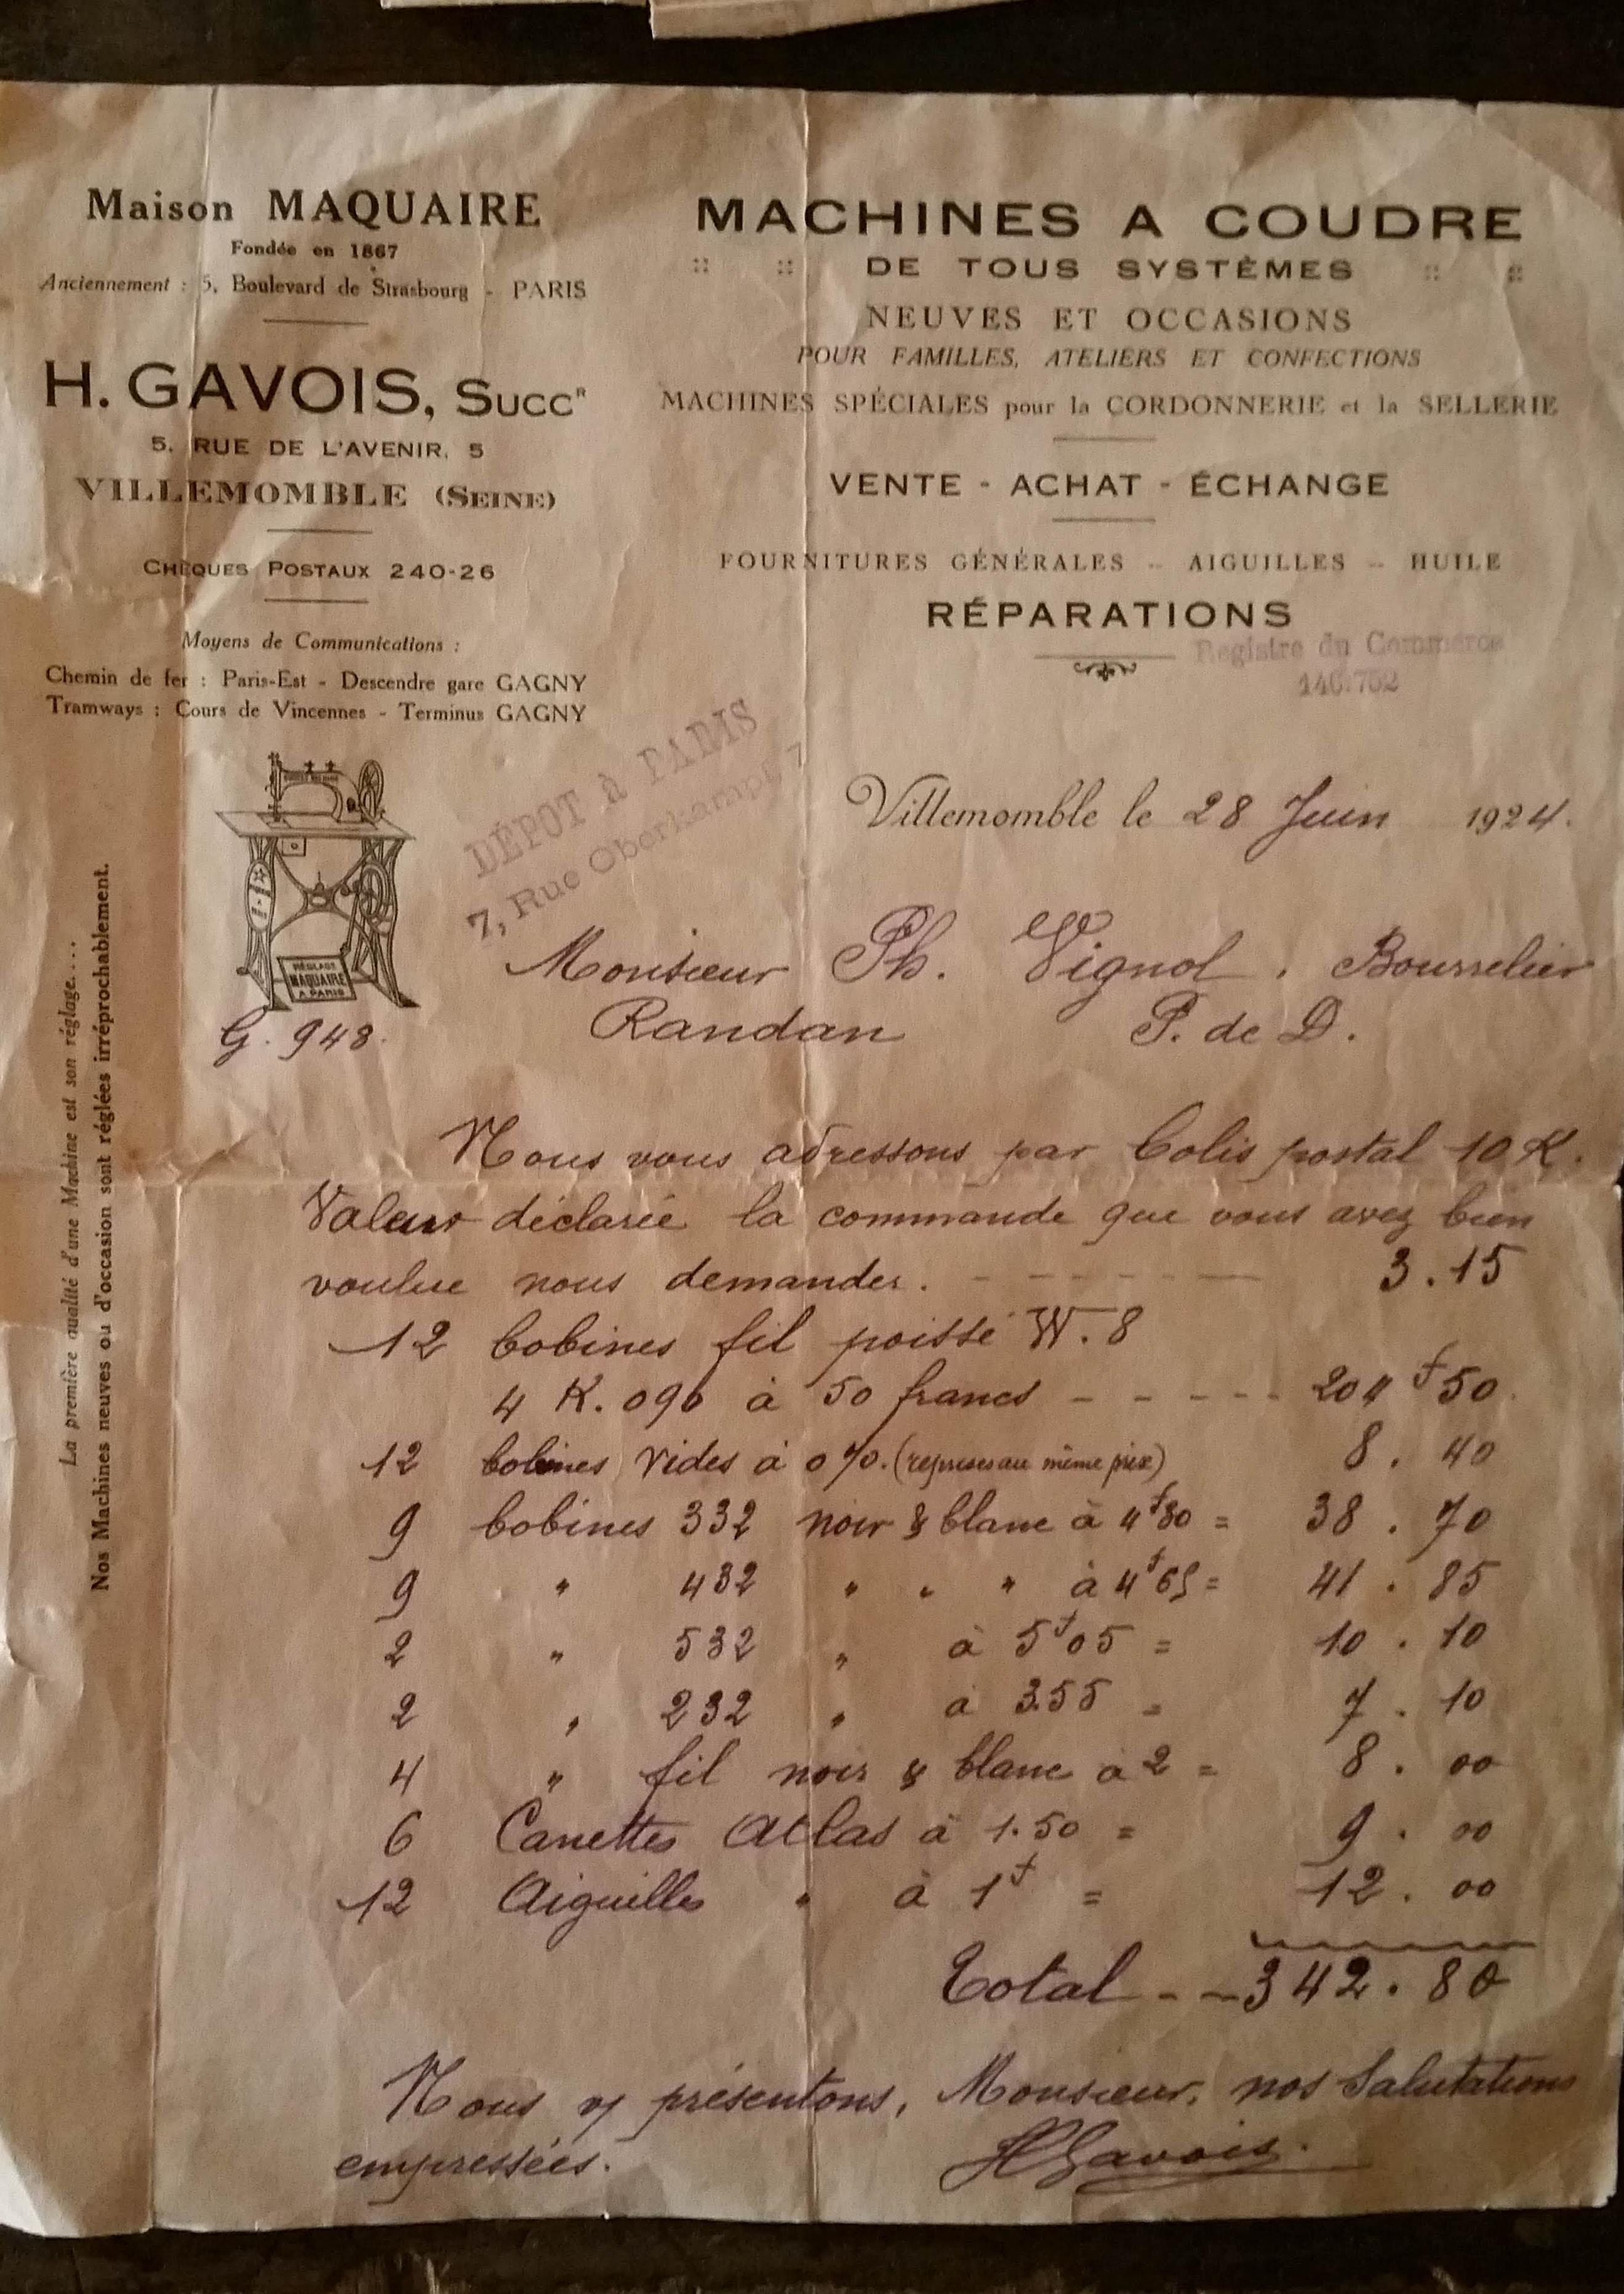 Maison MAQUAIRE
Fondée en 1867
Anciennement : 5, Boulevard de Strasbourg - PARIS
H. GAVOIS, SUCCR
5, RUE DE L'AVENIR, 5
VILLEMOMBLE (SEINE)
CHÈQUES POSTAUX 240-26
Moyens de Communications :
Chemin de fer : Paris-Est - Descendre gare GAGNY
Tramways : Cours de Vincennes - Terminus GAGNY
MACHINES A COUDRE
DE TOUS SYSTÈMES
NEUVES ET OCCASIONS
POUR FAMILLES, ATELIERS ET CONFECTIONS
MACHINES SPÉCIALES pour la CORDONNERIE et la SELLERIE
VENTE - ACHAT - ÉCHANGE
FOURNITURES GÉNÉRALES - AIGUILLES - HUILE
RÉPARATIONS
Registre du Commerce
146.752
DÉPOT à PARIS
7, Rue Oberkampf 7
RÉGLAGE
MAQUAIRE
A PARIS
G. 948.
La première qualité d'une Machine est son réglage....
Nos Machines neuves ou d'occasion sont réglées irréprochablement.
Villemomble le 28 Juin 1924.
Monsieur Ph. Vignol. Bourrelier
Randan P. de D.
Nous vous adressons par Colis postal 10 K.
Valeur déclarée la commande que vous avez bien
voulue nous demander. - - - - - - 3.15
12 bobines fil poissé W. 8
4 K. 090 à 50 francs - - - - - 204f50.
12 bobines vides à 0 70. (reprises au même prix) 8. 40
9 bobines 332 noir & blanc à 4f30 = 38. 70
9 " 432 " " " à 4f65 = 41. 85
2 " 532 " à 5f05 = 10. 10
2 " 232 " à 3.55 = 7. 10
4 " fil noir & blanc à 2 = 8. 00
6 Canettes Atlas à 1.50 = 9. 00
12 Aiguilles " à 1f = 12. 00
Total - - 342. 80
Nous v/ présentons, Monsieur, nos Salutations
empressées. HGavois.